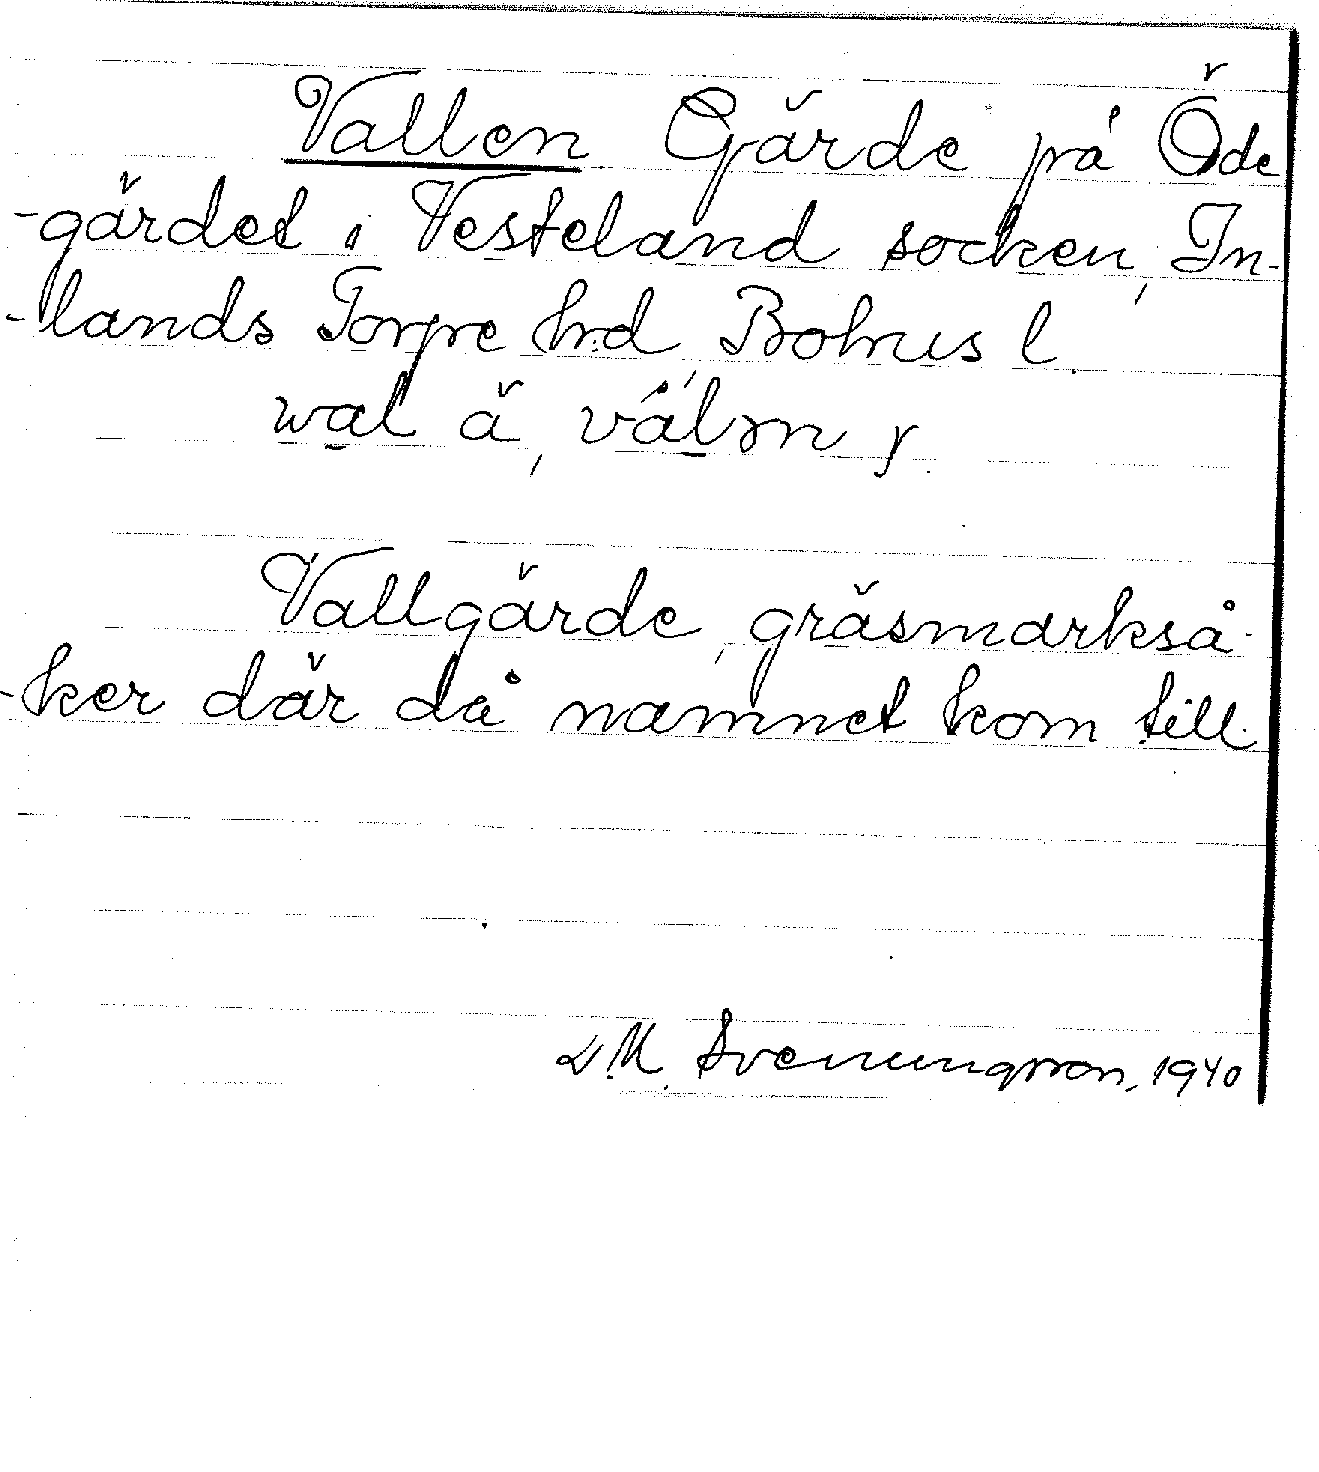 Vallen Gärde på Öde
-gärdet i Vesteland socken, In-
-lands Torpe hrd, Bohus l.
wal ä, válm y.
Vallgärde, gräsmarkså-
-ker där då namnet kom till.
D.M. Svenungsson, 1940